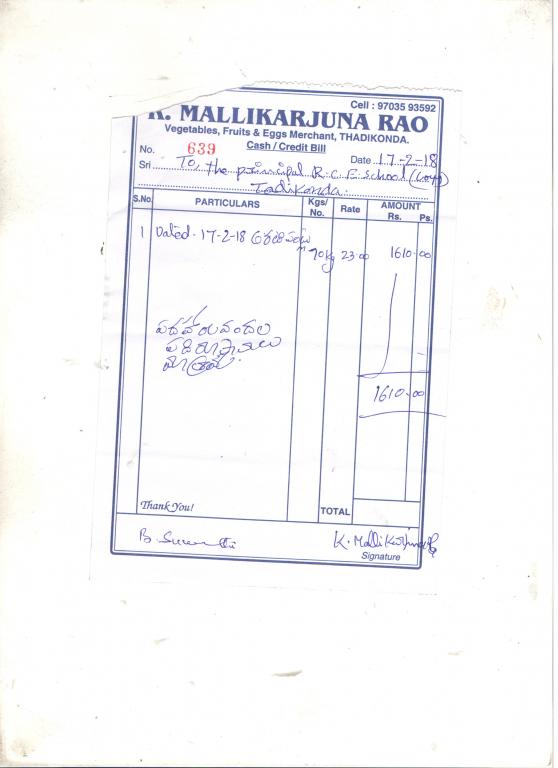 Cell : 97035 93592
K. MALLIKARJUNA RAO
Vegetables, Fruits & Eggs Merchant, THADIKONDA.
Cash / Credit Bill
No. 639 Date 17-2-18
Sri To, the principal R.C.E. School
Tadikonda.
S.No. PARTICULARS Kgs/ No. Rate AMOUNT Rs. Ps.
1 Dated - 17-2-18 70kg 23-00 1610-00
పదహారువందల
పది రూపాయలు
మాత్రమే.
1610-00
Thank You! TOTAL
K. Mallikarjuna
Signature